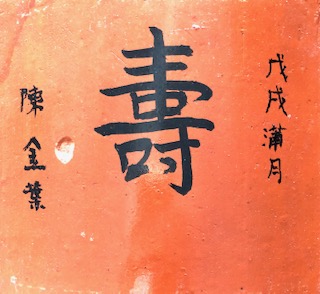 戊戌滿月
壽
陳金葉